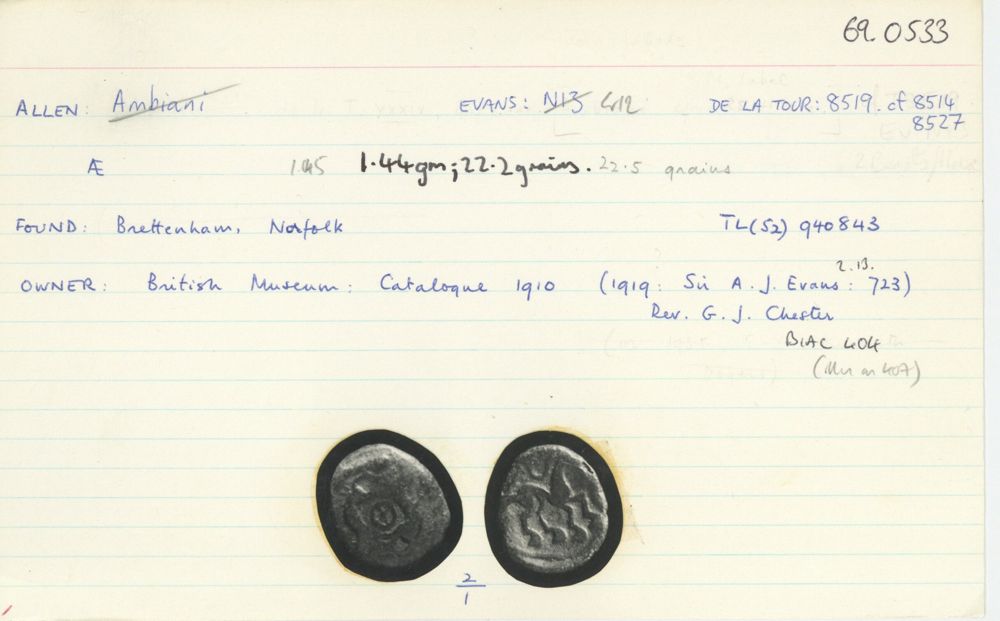 69.0533
ALLEN: Ambiani EVANS: N13 G12 DE LA TOUR: 8519. cf 8514
8527
Æ 1.45 1.44gm; 22.2 grains. 22.5 grains
FOUND: Brettenham, Norfolk TL(52) 940843
2.13.
OWNER: British Museum: Catalogue 1910 (1919: Sir A. J. Evans: 723)
Rev. G. J. Chester
BMC 404
407)
2
1